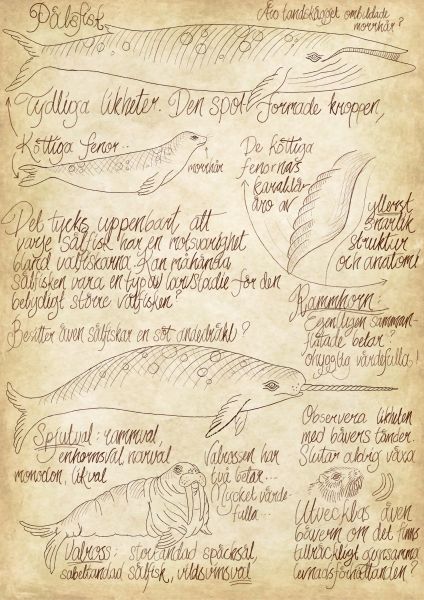 Pälsfisk
Äro tandskägget ombildade
morrhår?
Tydliga likheter. Den spolformade kroppen,
Köttiga fenor...
morrhår
De köttiga
fenornas
karaktär
äro av
ytterst
snarlik
struktur
och anatomi
Det tycks uppenbart att
varje sälfisk har en motsvarighet
bland valfiskarna. Kan måhända
sälfisken vara en typ av larvstadie för den
betydligt större valfisken?
Besitter även sälfiskar en söt andedräkt?
Rammhorn:
Egentligen samman-
flätade betar?
Ohyggligt värdefulla!
Spjutval: rammval,
enhornsval, narval
monodon, likval
Valrossen har
två betar...
Mycket värde-
fulla...
Observera likheten
med bäverns tänder.
Slutar aldrig växa
Utvecklas även
bävern om det finns
tillräckligt gynsamma
levnadsförhållanden?
Valross: stortandad späcksäl,
sabeltandad sälfisk, vildsvinsval